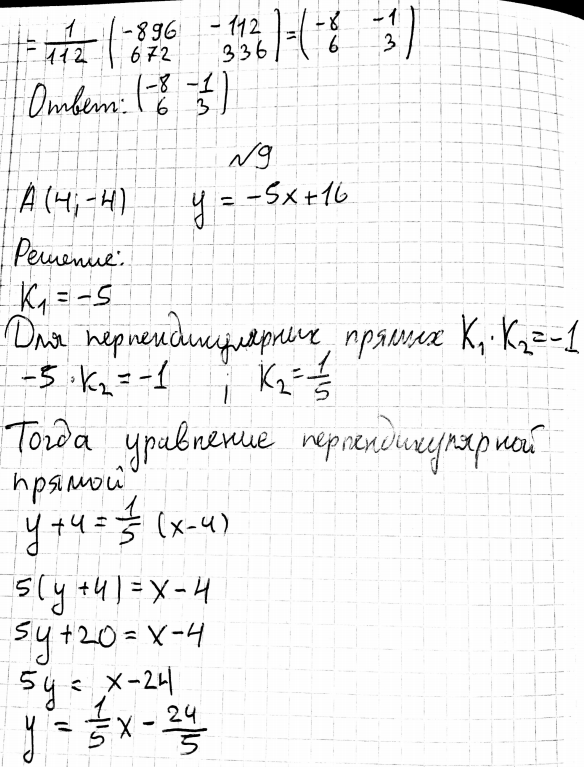 = 1/112 (-896 -112 672 336) = (-8 -1 6 3)
Ответ: (-8 -1 6 3)
№9
A(4;-4) y = -5x+16
Решение:
K₁ = -5
Для перпендикулярных прямых K₁·K₂=-1
-5·K₂=-1 ; K₂=1/5
Тогда уравнение перпендикулярной
прямой
y+4=1/5 (x-4)
5(y+4)=x-4
5y+20=x-4
5y = x-24
y = 1/5 x - 24/5